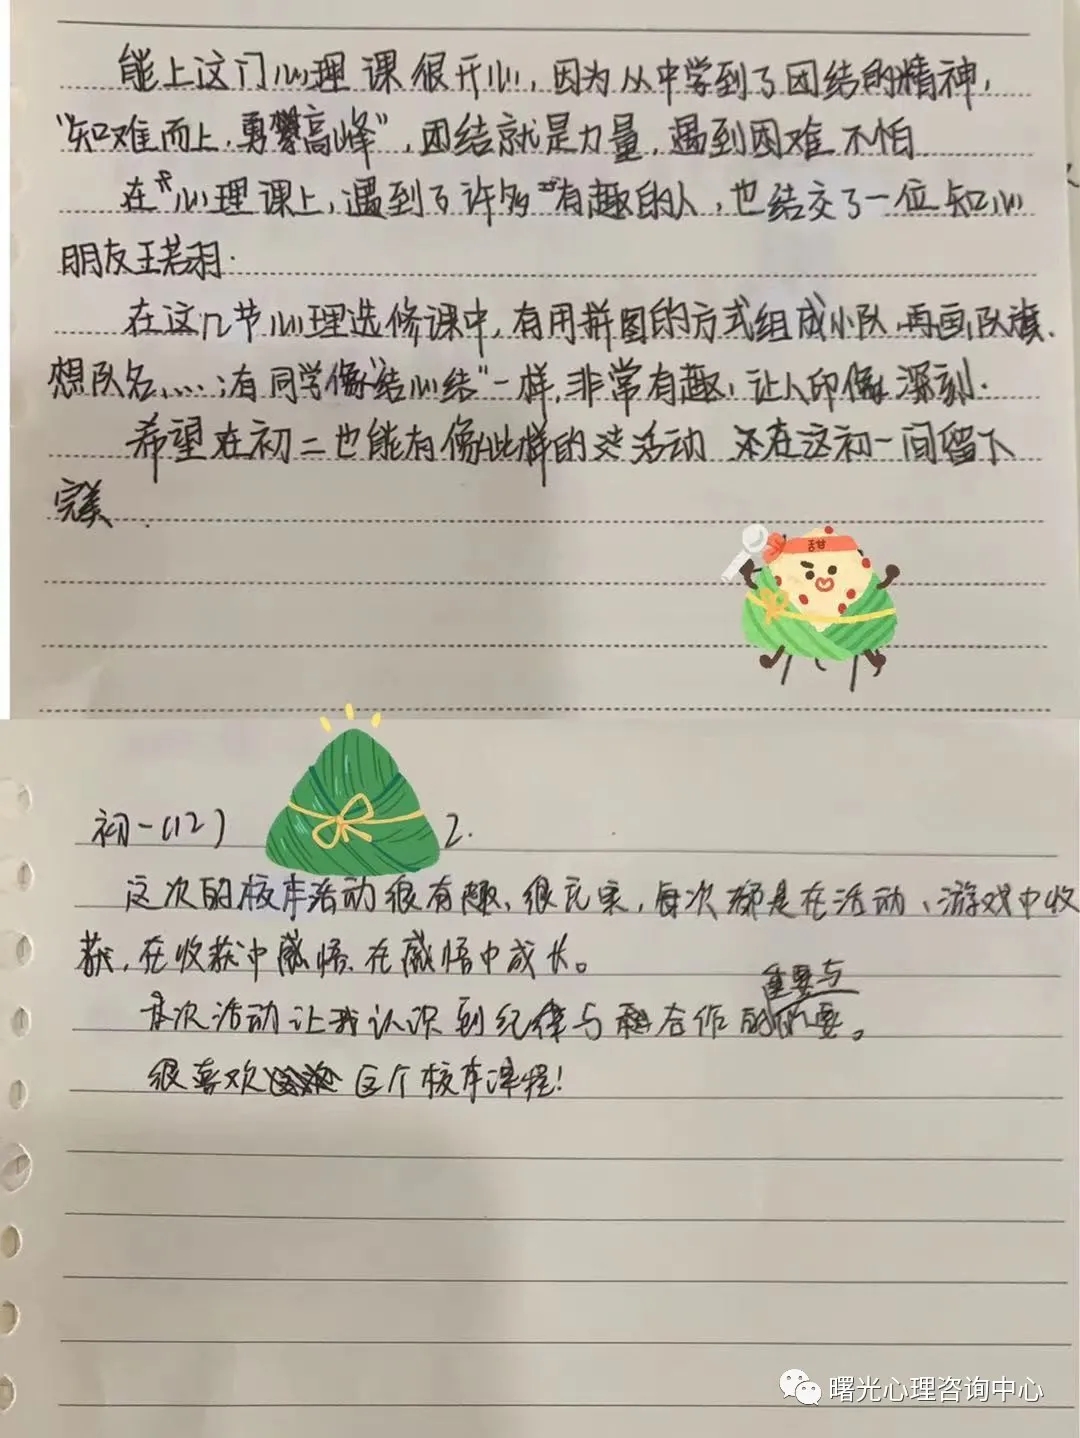 能上这门心理课很开心,因为从中学到了团结的精神,
"知难而上,勇攀高峰",团结就是力量,遇到困难不怕
在心理课上,遇到了许多有趣的人,也结交了一位知心
朋友王若羽.
在这几节心理选修课中,有用拼图的方式组成小队,再画队旗,
想队名,...;有同学像"结心结"一样,非常有趣,让人印像深刻.
希望在初二也能有像此样的活动 还在这初一间留下
完美.
甜
初一(12) 2.
这次的校本活动很有趣,很充实,每次都是在活动、游戏中收
获,在收获中感悟,在感悟中成长。
重要与
本次活动让我认识到纪律与合作的必要。
很喜欢这个校本课程!
曙光心理咨询中心